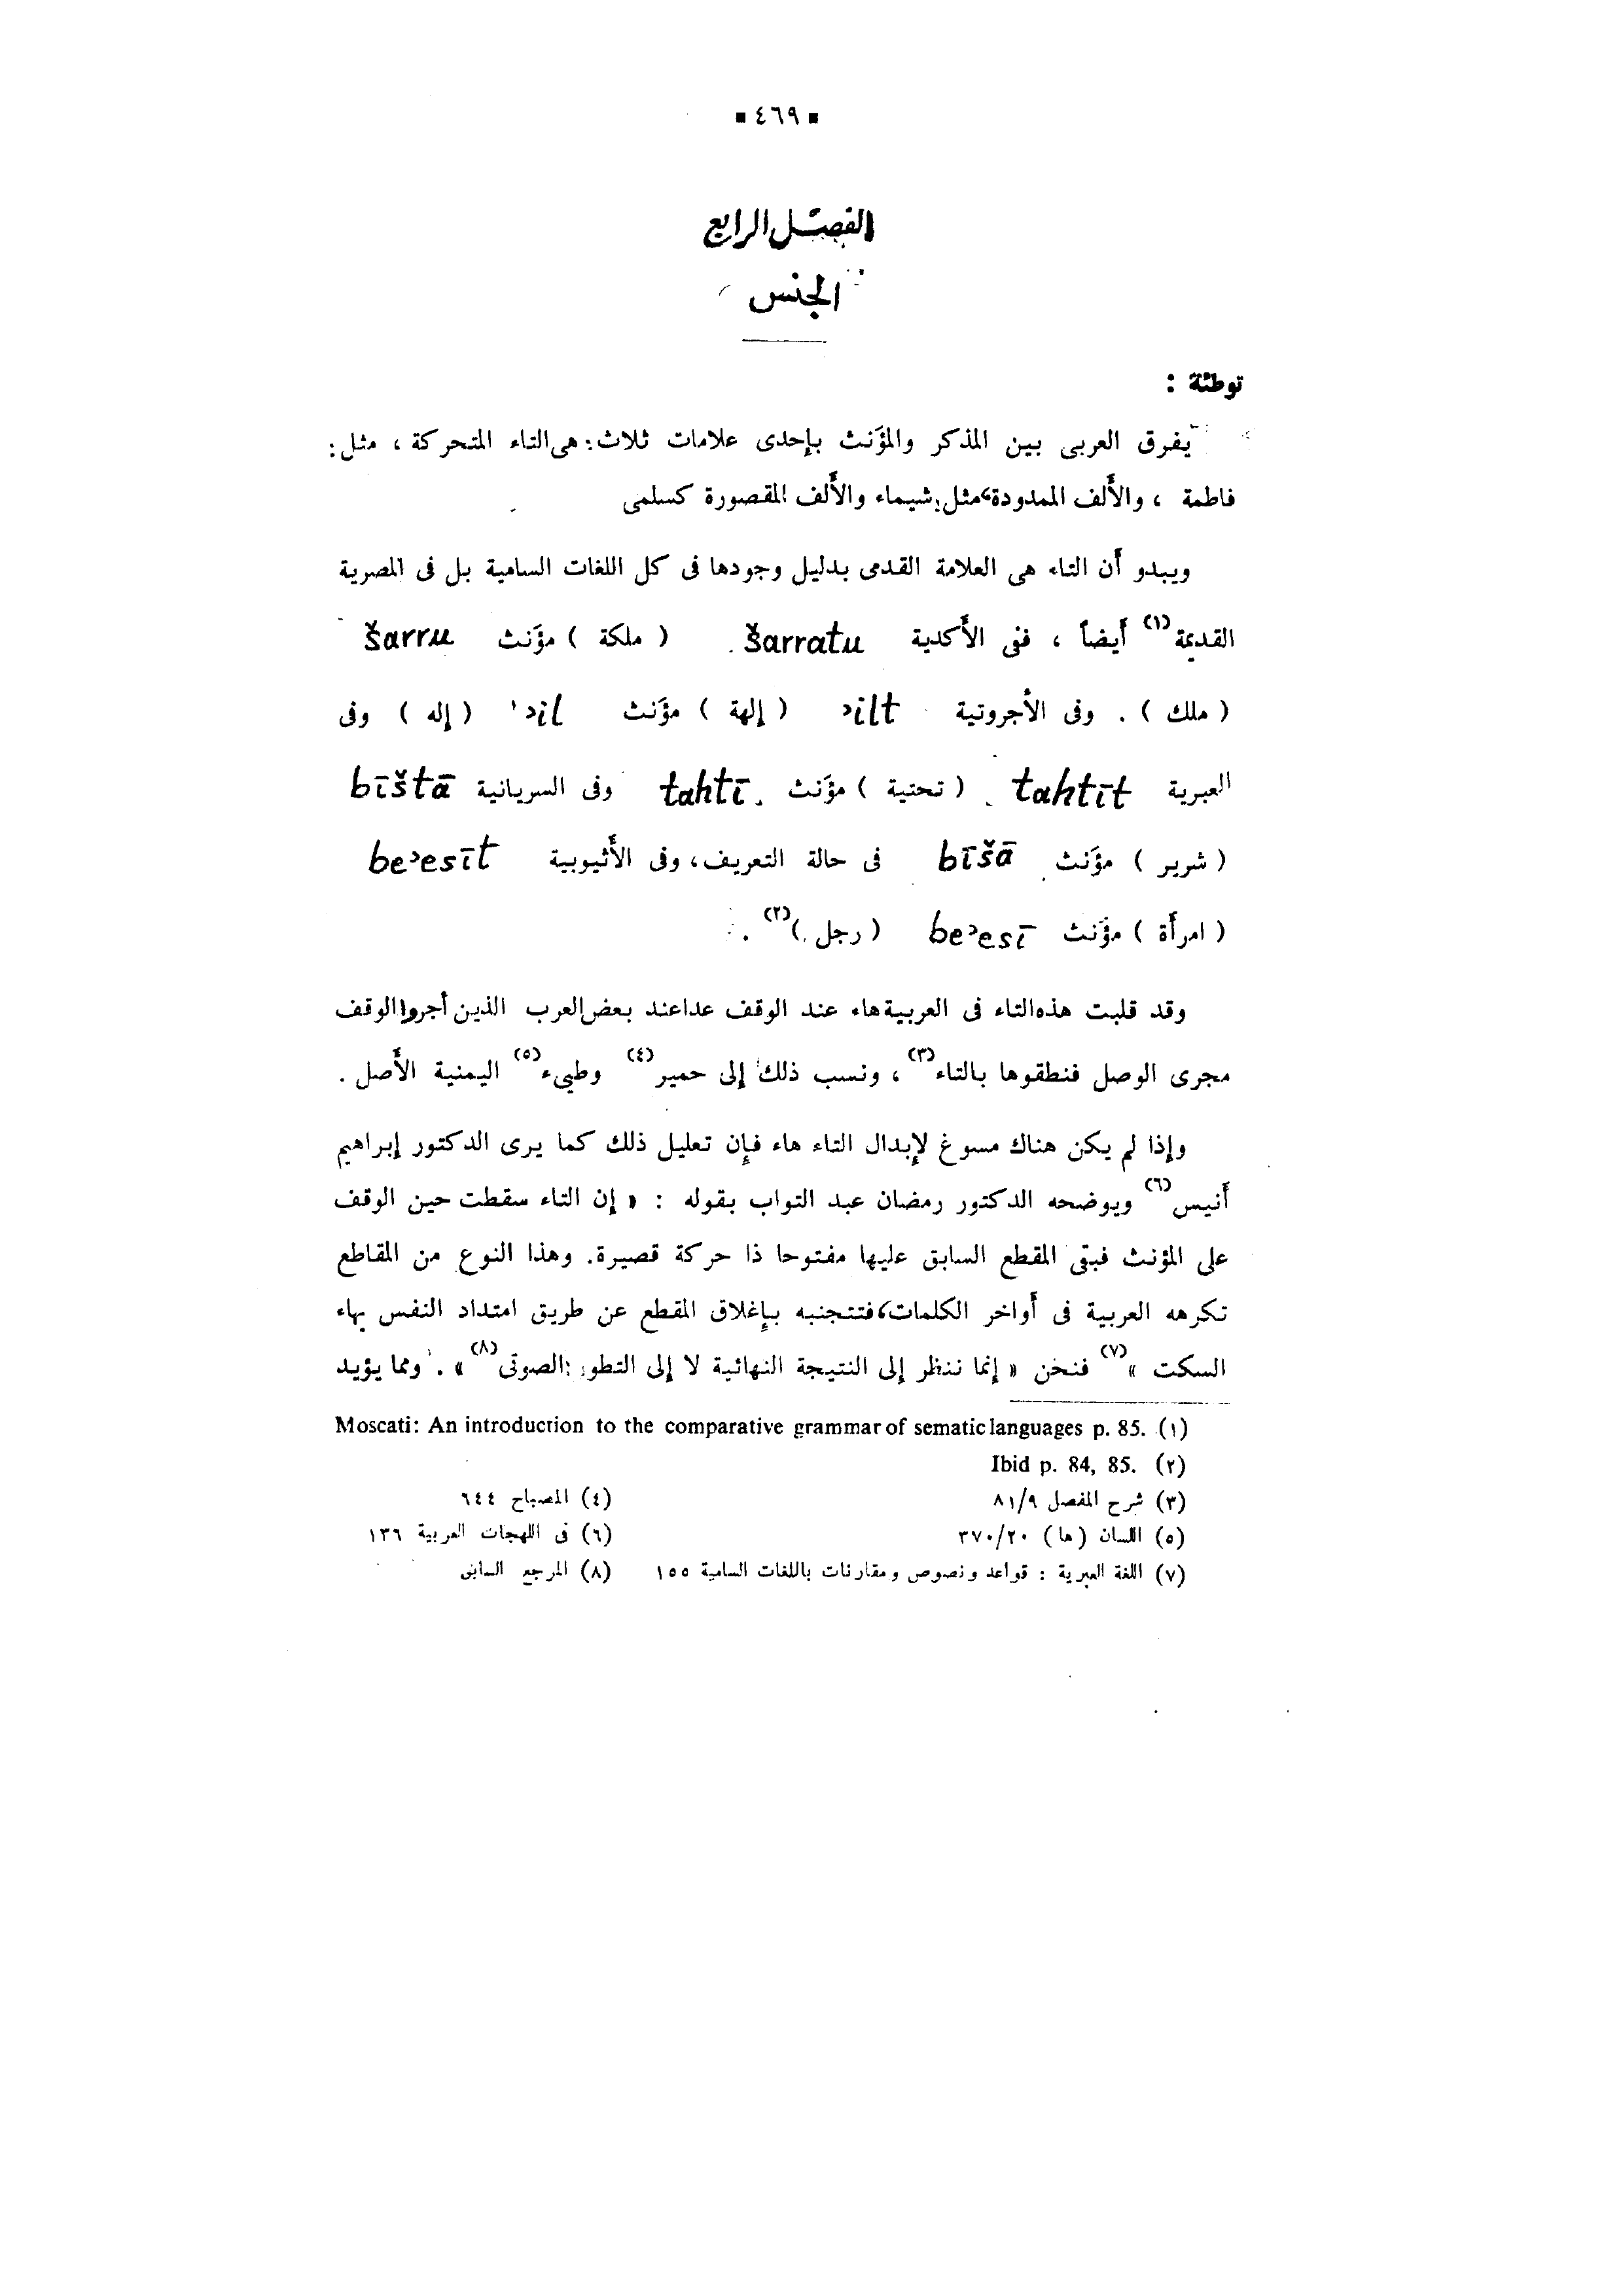 ▪ ٤٦٩ ▪
الفصل الرابع
الجنس
توطئة :
يفرق العربى بين المذكر والمؤَنث بإِحدى علامات ثلاث: هى التاء المتحركة ، مثل:
فاطمة ، والأَلف الممدودة، مثل: شيماء والأَلف المقصورة كسلمى
ويبدو أَن التاء هى العلامة القدمى بدليل وجودها فى كل اللغات السامية بل فى المصرية
القديمة(١) أَيضاً ، ففى الأَكدية šarratu ( ملكة ) مؤَنث šarru
( ملك ) . وفى الأجروتية ʾilt ( إلهة ) مؤَنث ʾil ( إله ) وفى
العبرية tahtīt ( تحتية ) مؤَنث tahtī وفى السريانية bīštā
( شرير ) مؤَنث bīšā فى حالة التعريف، وفى الأَثيوبية beʾesīt
( امرأَة ) مؤَنث beʾesī ( رجل )(٢) .
وقد قلبت هذه التاء فى العربية هاء عند الوقف عدا عند بعض العرب الذين أجروا الوقف
مجرى الوصل فنطقوها بالتاء(٣) ، ونسب ذلك إلى حمير(٤) وطيىء(٥) اليمنية الأَصل .
وإذا لم يكن هناك مسوغ لإِبدال التاء هاء فإِن تعليل ذلك كما يرى الدكتور إبراهيم
أَنيس(٦) ويوضحه الدكتور رمضان عبد التواب بقوله : « إن التاء سقطت حين الوقف
على المؤنث فبقى المقطع السابق عليها مفتوحا ذا حركة قصيرة. وهذا النوع من المقاطع
تكرهه العربية فى أَواخر الكلمات، فتتجنبه بإِغلاق المقطع عن طريق امتداد النفس بهاء
السكت »(٧) فنحن « إنما ننظر إلى النتيجة النهائية لا إلى التطور الصوتى(٨) » . ومما يؤيد
(١) Moscati: An introduction to the comparative grammar of sematic languages p. 85.
(٢) Ibid p. 84, 85.
(٣) شرح المفصل ٨١/٩ (٤) المصباح ٦٤٤
(٥) اللسان ( ها ) ٣٧٠/٢٠ (٦) فى اللهجات العربية ١٣٦
(٧) اللغة العبرية : قواعد ونصوص ومقارنات باللغات السامية ١٥٥ (٨) المرجع السابق